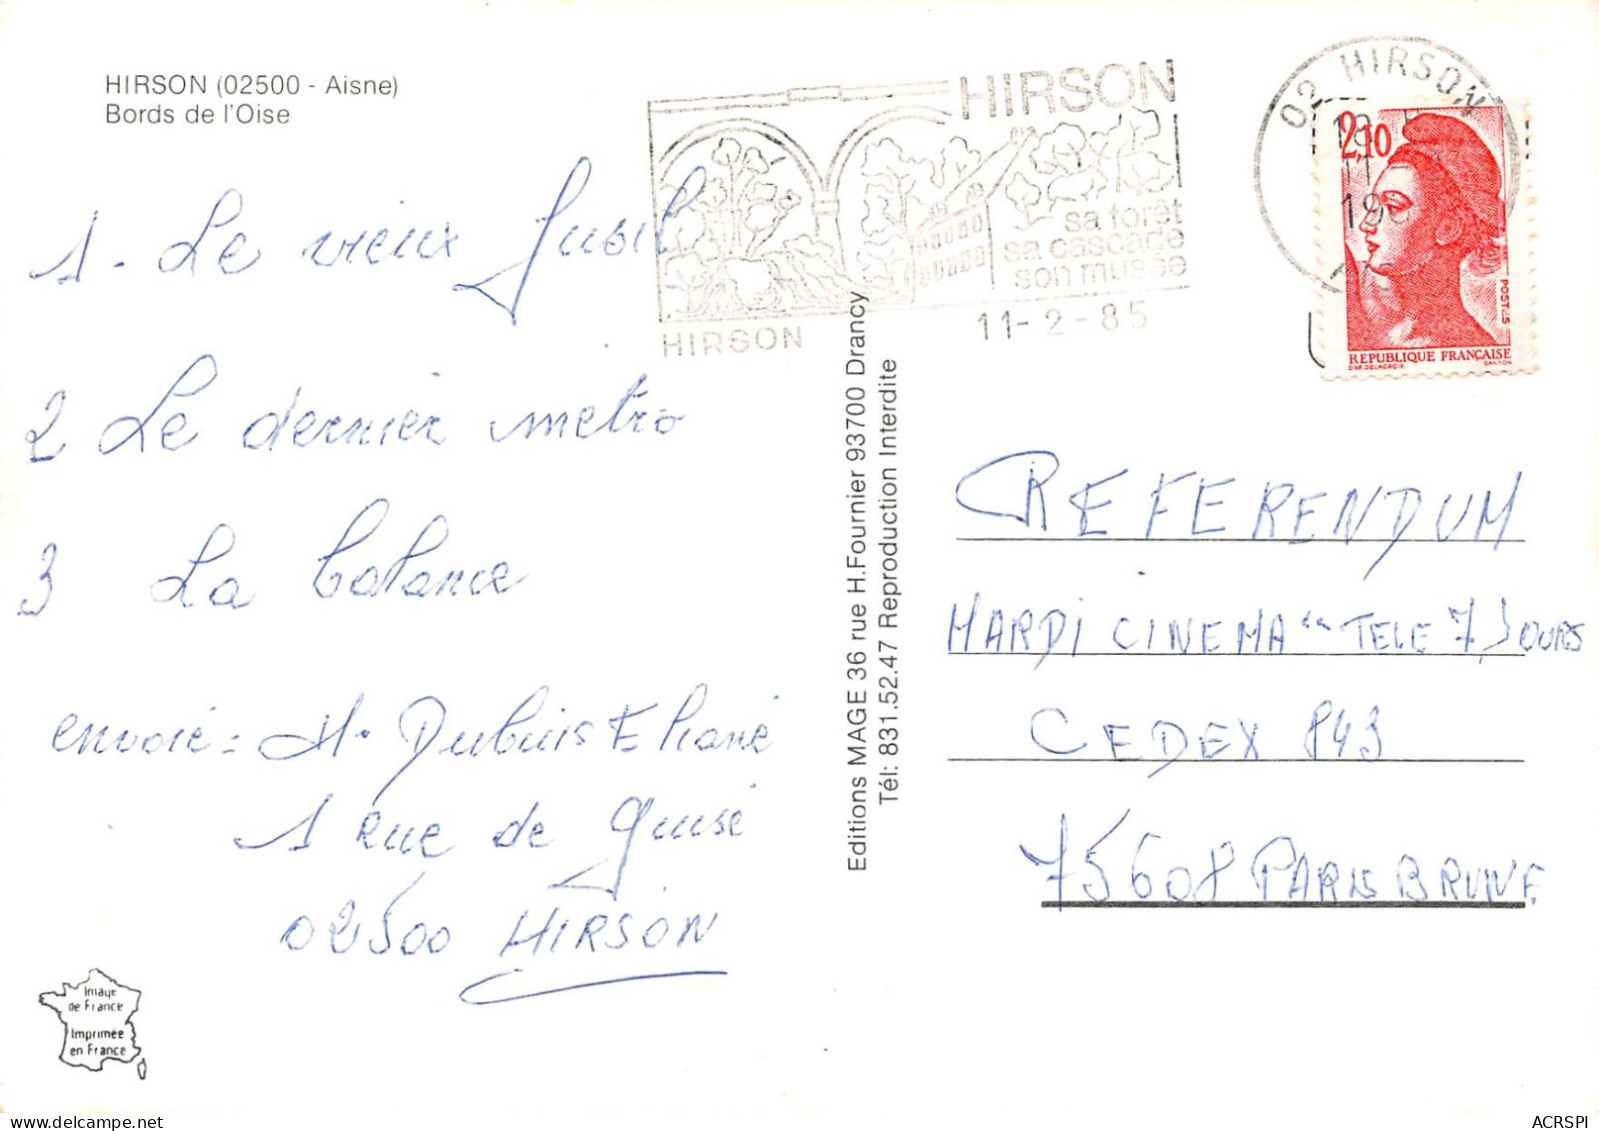 HIRSON (02500 - Aisne)
Bords de l'Oise
1 - Le vieux fusil
2 Le dernier metro
3 La balance
envoié = M. Dubuis Eliane
1 Rue de Guise
02500 HIRSON
Image
de France
Imprimée
en France
Editions MAGE 36 rue H.Fournier 93700 Drancy
Tél: 831.52.47 Reproduction Interdite
HIRSON
sa forêt
sa cascade
son musée
HIRSON
11-2-85
02 HIRSON
2,10
POSTES
REPUBLIQUE FRANÇAISE
D'AP. DELACROIX GANDON
REFERENDUM
MARDI CINEMA " TELE 7 JOURS
CEDEX 843
75608 PARIS BRUNE
ACRSPI